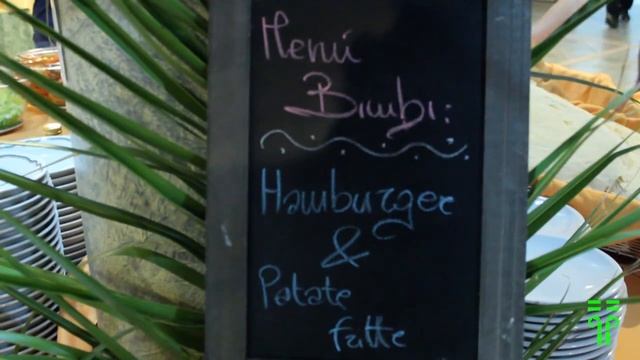 Menú
Bimbi:
Hamburger
&
Patate
fatte